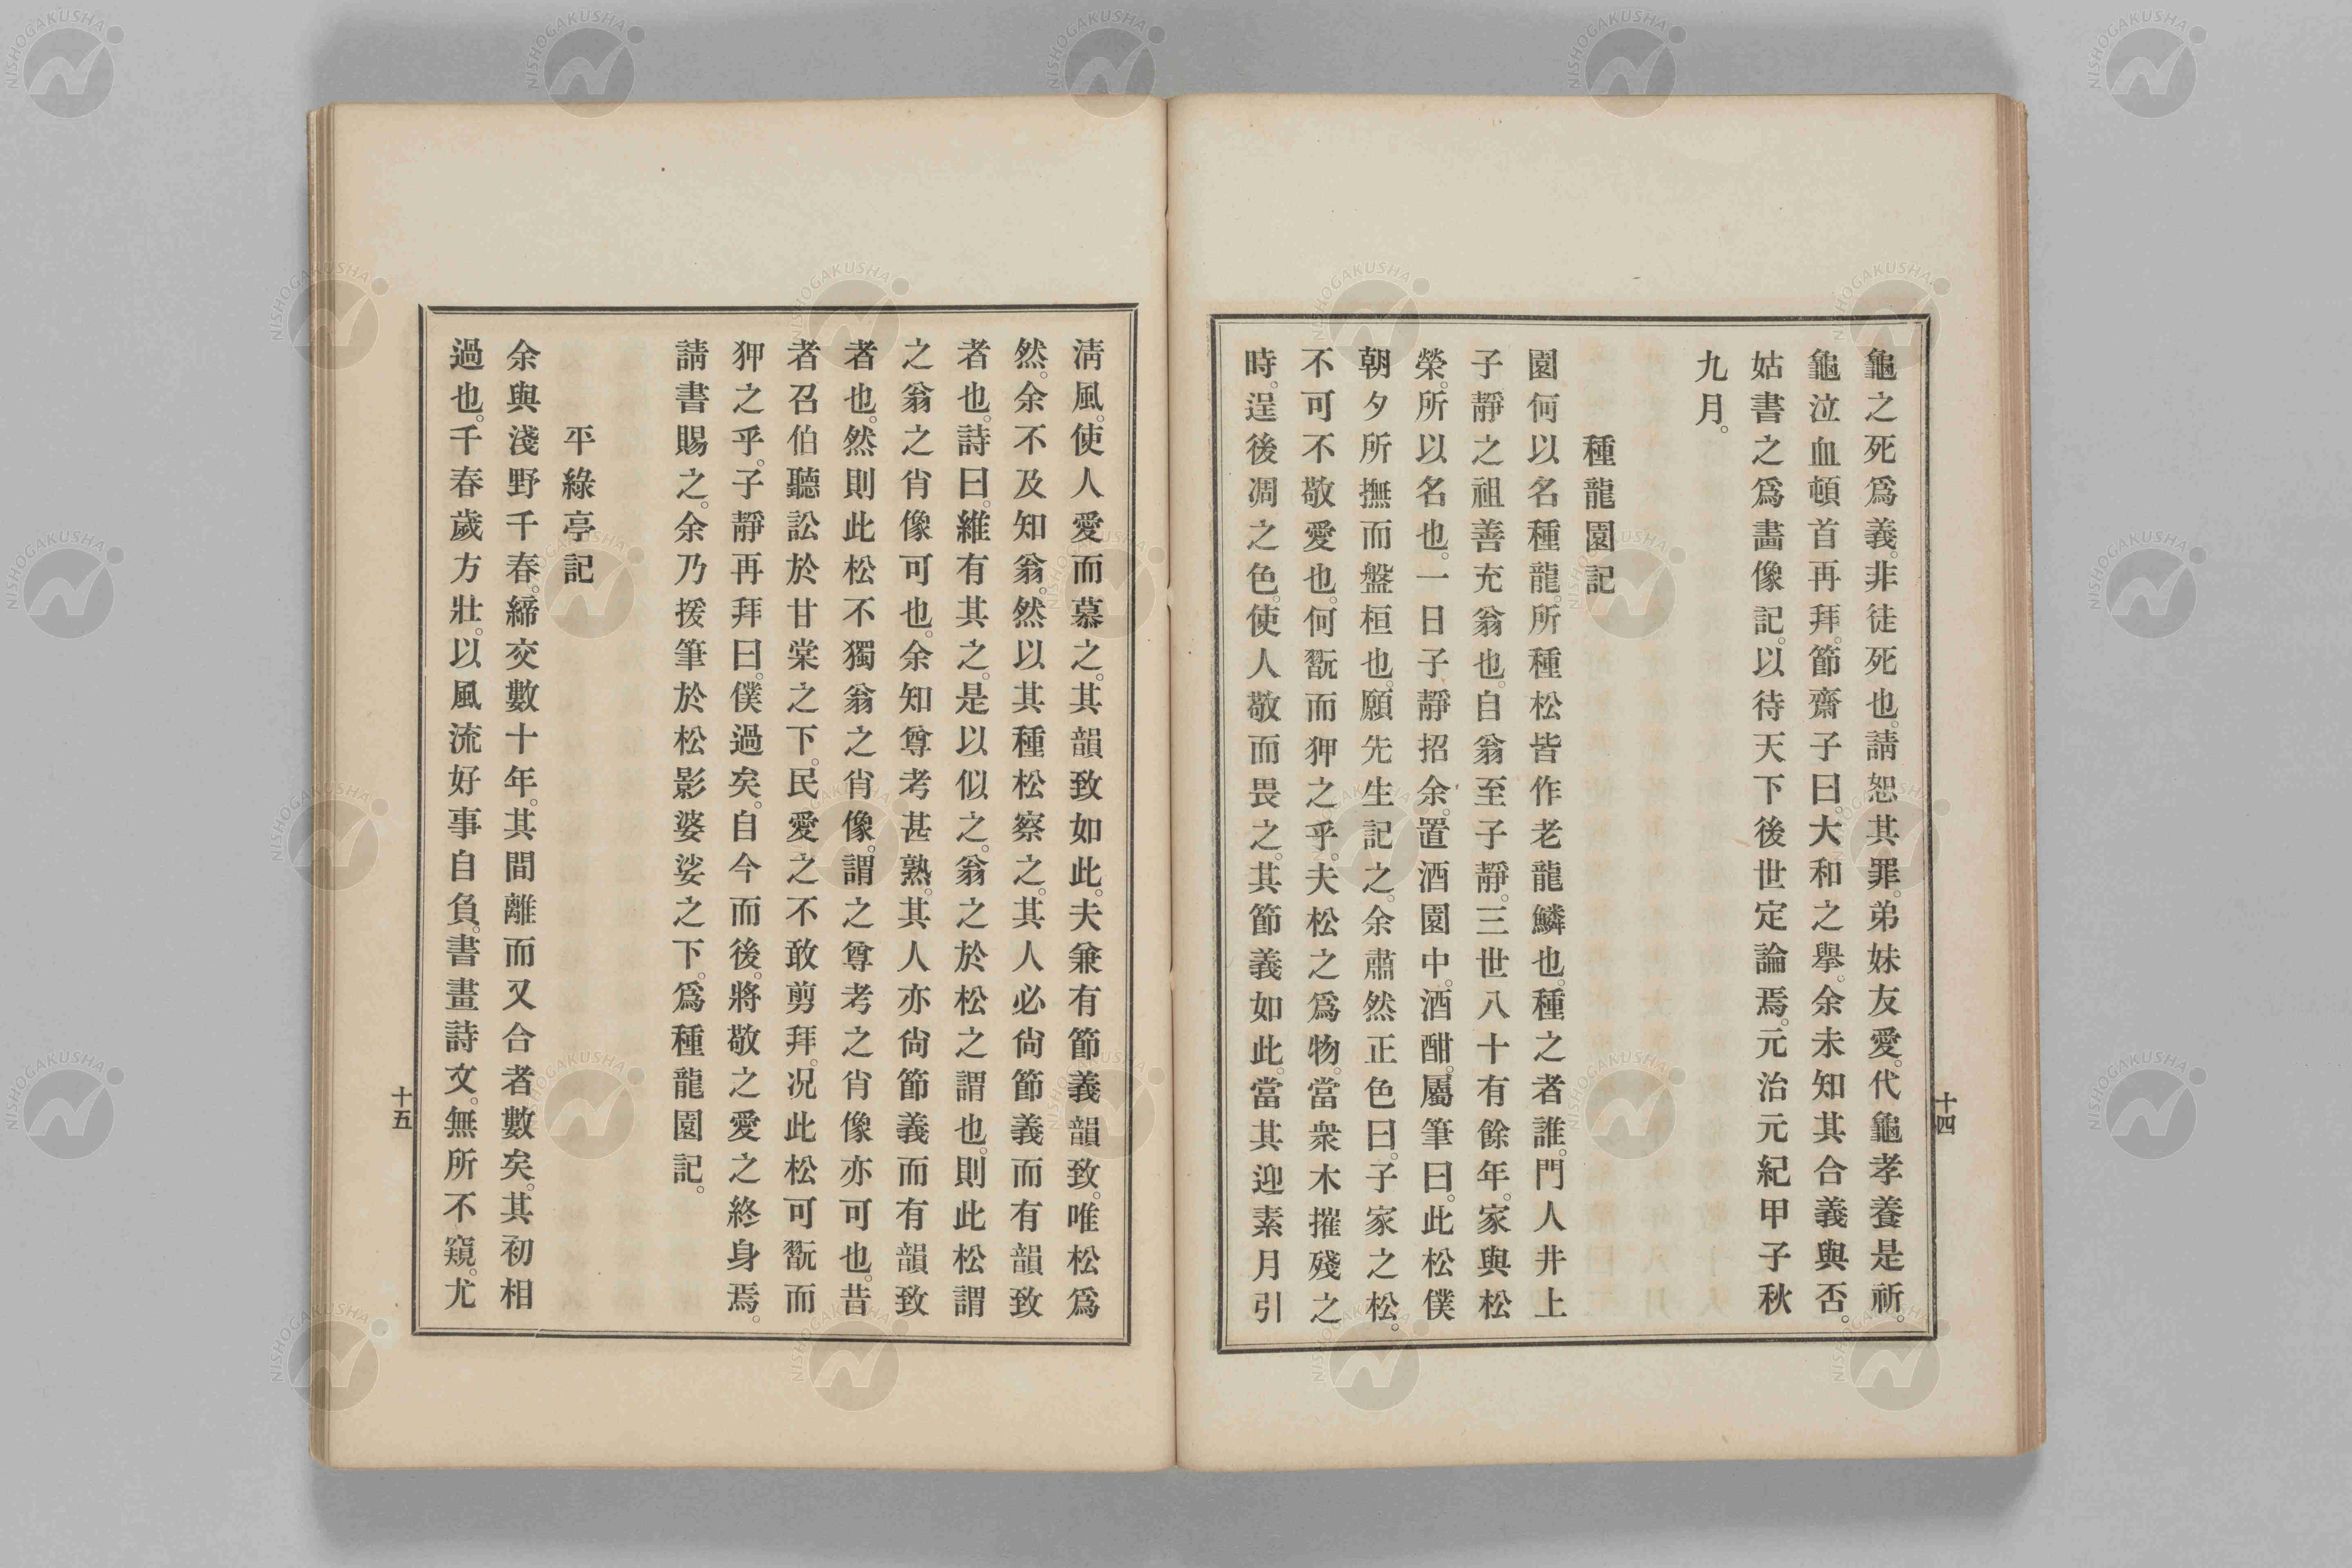 龜之死爲義。非徒死也。請恕其罪。弟妹友愛。代龜孝養是祈。
龜泣血頓首再拜。節齋子曰。大和之擧。余未知其合義與否。
姑書之爲畵像記。以待天下後世定論焉。元治元紀甲子秋
九月。
種龍園記
園何以名種龍。所種松皆作老龍鱗也。種之者誰。門人井上
子靜之祖善充翁也。自翁至子靜。三世八十有餘年。家與松
榮。所以名也。一日子靜招余。置酒園中。酒酣。屬筆曰。此松僕
朝夕所撫而盤桓也。願先生記之。余肅然正色曰。子家之松。
不可不敬愛也。何翫而狎之乎。夫松之爲物。當衆木摧殘之
時。逞後凋之色。使人敬而畏之。其節義如此。當其迎素月引
十四
淸風。使人愛而慕之。其韻致如此。夫兼有節義韻致。唯松爲
然。余不及知翁。然以其種松察之。其人必尙節義而有韻致
者也。詩曰。維有其之。是以似之。翁之於松之謂也。則此松謂
之翁之肖像可也。余知尊考甚熟。其人亦尙節義而有韻致
者也。然則此松不獨翁之肖像。謂之尊考之肖像亦可也。昔
者召伯聽訟於甘棠之下。民愛之不敢剪拜。况此松可翫而
狎之乎。子靜再拜曰。僕過矣。自今而後。將敬之愛之終身焉。
請書賜之。余乃援筆於松影婆娑之下。爲種龍園記。
平綠亭記
余與淺野千春。締交數十年。其間離而又合者數矣。其初相
過也。千春歲方壯。以風流好事自負。書畫詩文。無所不窺。尤
十五
NISHOGAKUSHA